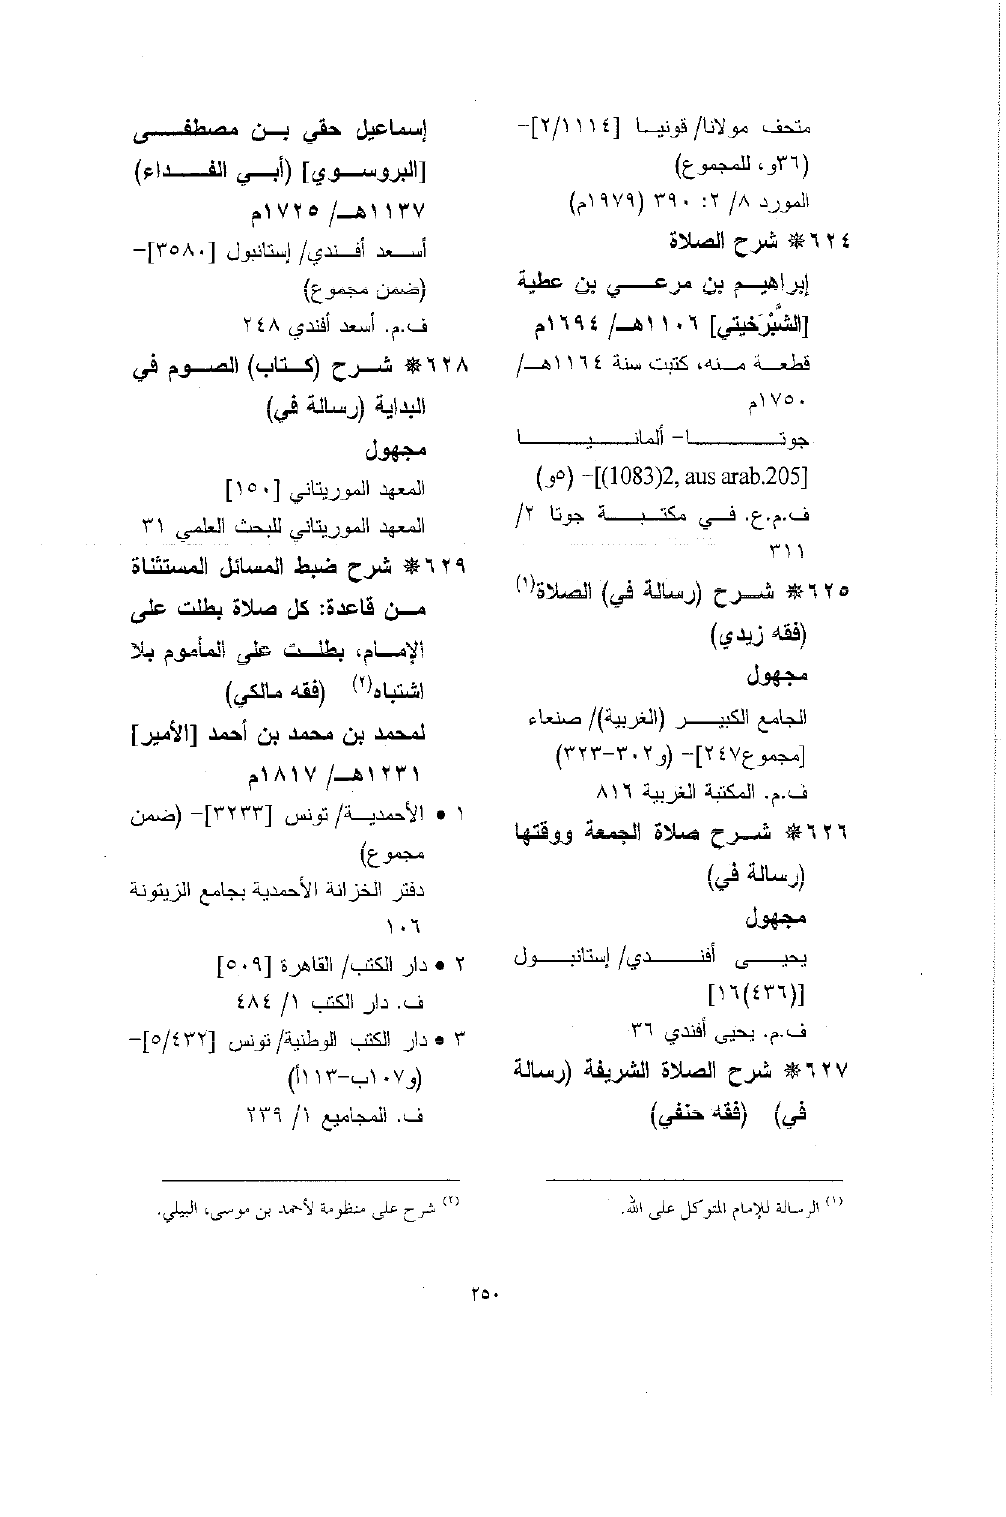 متحف مولانا/ قونيا [٢/١١١٤]-
(٣٦و، للمجموع)
المورد ٨/ ٢: ٣٩٠ (١٩٧٩م)
٦٢٤* شرح الصلاة
إبراهيم بن مرعي بن عطية
[الشَّبْرَخيتي] ١١٠٦هـ/ ١٦٩٤م
قطعة منه، كتبت سنة ١١٦٤هـ/
١٧٥٠م
جوتا- ألمانيا
[1083)2, aus arab.205)]- (٥و)
ف.م.ع. في مكتبة جوتا ٢/
٣١١
٦٢٥* شرح (رسالة في) الصلاة(١)
(فقه زيدي)
مجهول
الجامع الكبير (الغربية)/ صنعاء
[مجموع٢٤٧]- (و٣٠٢-٣٢٣)
ف.م. المكتبة الغربية ٨١٦
٦٢٦* شرح صلاة الجمعة ووقتها
(رسالة في)
مجهول
يحيى أفندي/ إستانبول
[(٤٣٦)١٦]
ف.م. يحيى أفندي ٣٦
٦٢٧* شرح الصلاة الشريفة (رسالة
في) (فقه حنفي)
إسماعيل حقي بن مصطفى
[البروسوي] (أبي الفداء)
١١٣٧هـ/ ١٧٢٥م
أسعد أفندي/ إستانبول [٣٥٨٠]-
(ضمن مجموع)
ف.م. أسعد أفندي ٢٤٨
٦٢٨* شرح (كتاب) الصوم في
البداية (رسالة في)
مجهول
المعهد الموريتاني [١٥٠]
المعهد الموريتاني للبحث العلمي ٣١
٦٢٩* شرح ضبط المسائل المستثناة
من قاعدة: كل صلاة بطلت على
الإمام، بطلت على المأموم بلا
اشتباه(٢) (فقه مالكي)
لمحمد بن محمد بن أحمد [الأمير]
١٢٣١هـ/ ١٨١٧م
١ • الأحمدية/ تونس [٣٢٣٣]- (ضمن
مجموع)
دفتر الخزانة الأحمدية بجامع الزيتونة
١٠٦
٢ • دار الكتب/ القاهرة [٥٠٩]
ف. دار الكتب ١/ ٤٨٤
٣ • دار الكتب الوطنية/ تونس [٥/٤٣٢]-
(و١٠٧ب-١١٣أ)
ف. المجاميع ١/ ٢٣٩
(١) الرسالة للإمام المتوكل على الله.
(٢) شرح على منظومة لأحمد بن موسى، البيلي.
٢٥٠